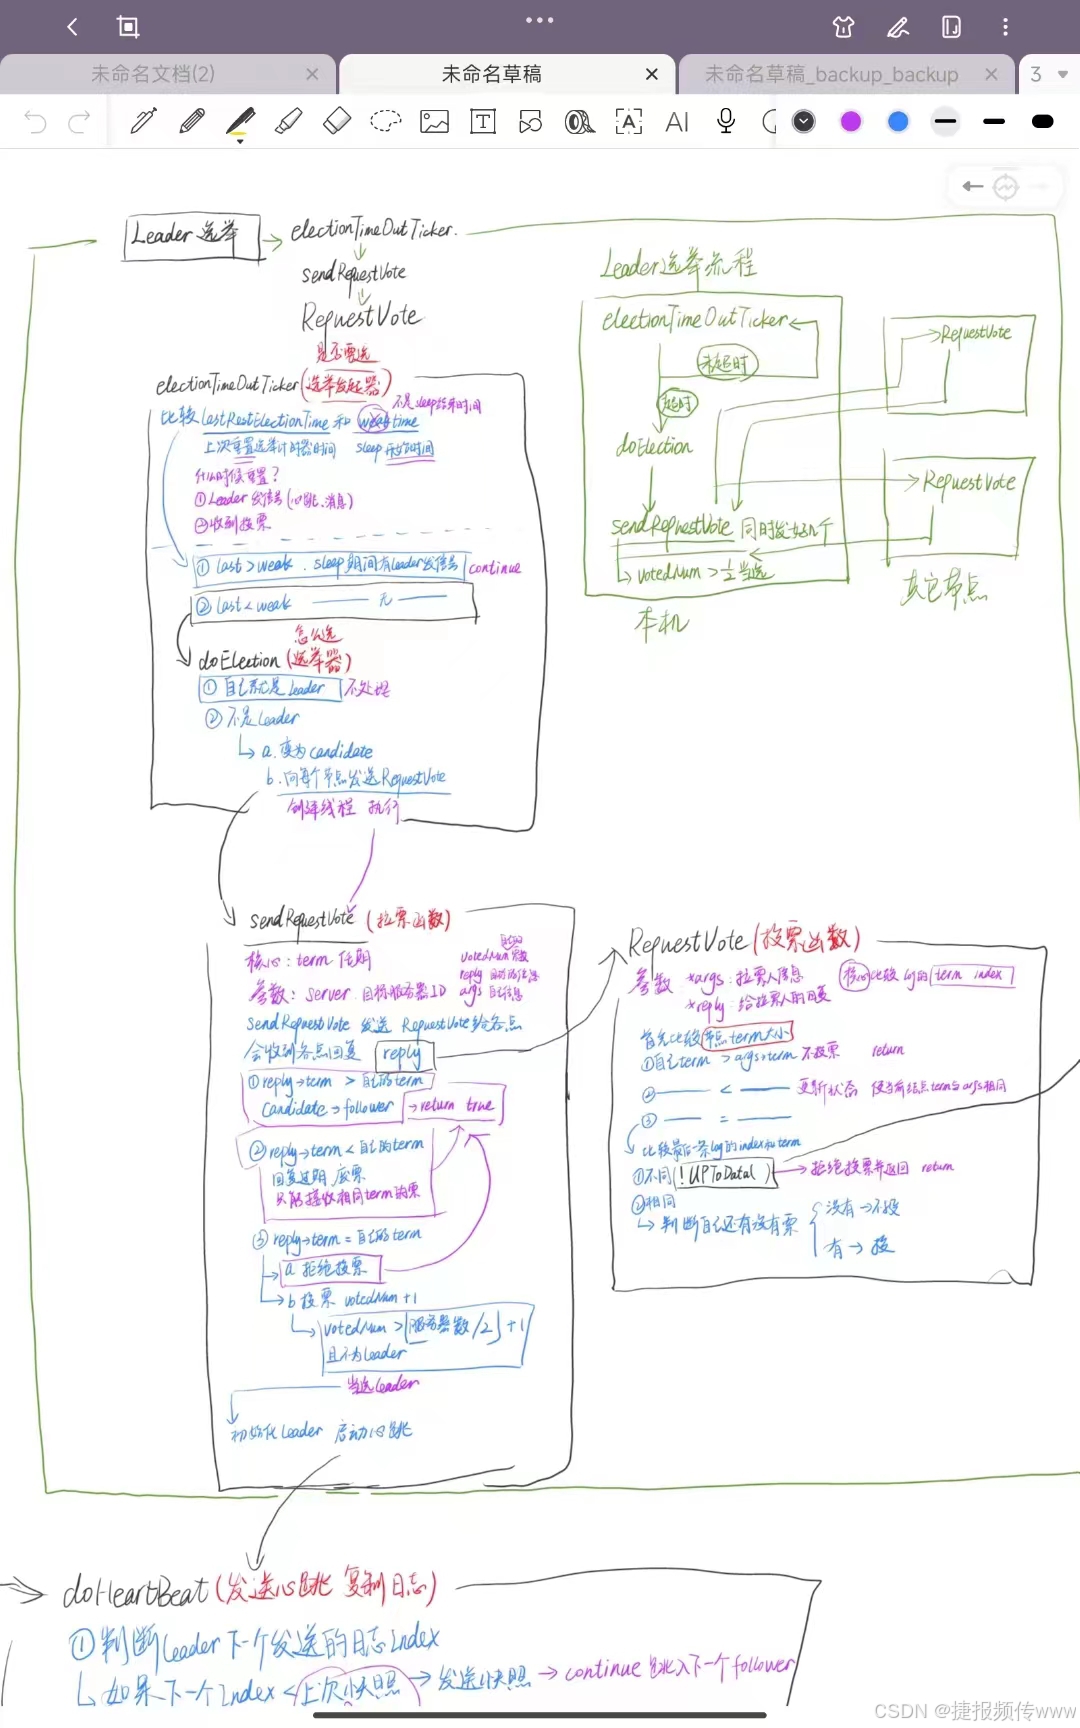 未命名文档(2)
未命名草稿
未命名草稿_backup_backup
3
Leader 选举
electionTimeOutTicker.
sendRequestVote
RequestVote
是否要选
electionTimeOutTicker(选举发起器)
不是sleep结束时间
比较 lastRestElectionTime 和 weaktime
上次重置选举计时器时间 sleep开始时间
什么时候重置?
①Leader 发信号(心跳、消息)
②收到投票
① last>weak . sleep期间有leader发信号 continue
② last<weak —— 无 ——
怎么选
doElection (选举器)
① 自己就是 leader 不处理
② 不是Leader
a. 变为candidate
b. 向每个节点发送RequestVote
创建线程 执行
Leader选举流程
electionTimeOutTicker
未超时
超时
doElection
sendRequestVote 同时发好几个
votedNum > 1/2 当选
本机
RequestVote
RequestVote
其它节点
sendRequestVote (拉票函数)
核心: term 任期
参数: server 目标服务器ID
votedNum 票数
args 自己信息
sendRequestVote 发送 RequestVote给各点
会收到各点回复 reply
① reply→term > 自己的term
candidate→follower → return true
② reply→term < 自己的term
回复过期 废票
只能接收相同term的票
③ reply→term = 自己的term
a 拒绝投票
b 投票 votedNum +1
votedNum > ⌊服务器数/2⌋+1
且不为leader
当选leader
初始化leader 启动心跳
RequestVote (投票函数)
参数 *args: 拉票人信息
*reply: 给拉票人的回复
核心比较 log的 term index
首先比较 节点term大小
①自己term > args→term 不投票 return
② —— < —— 更新状态 使当前结点term与args相同
③ —— = ——
比较最后一条log的index和term
①不同 (!UPToData( ) → 拒绝投票并返回 return
②相同
判断自己还有没有票
没有→不投
有→投
doHeartBeat (发送心跳 复制日志)
①判断leader下一个发送的日志Index
如果下一个Index < 上次快照 → 发送快照 → continue 跳入下一个follower
CSDN @捷报频传www